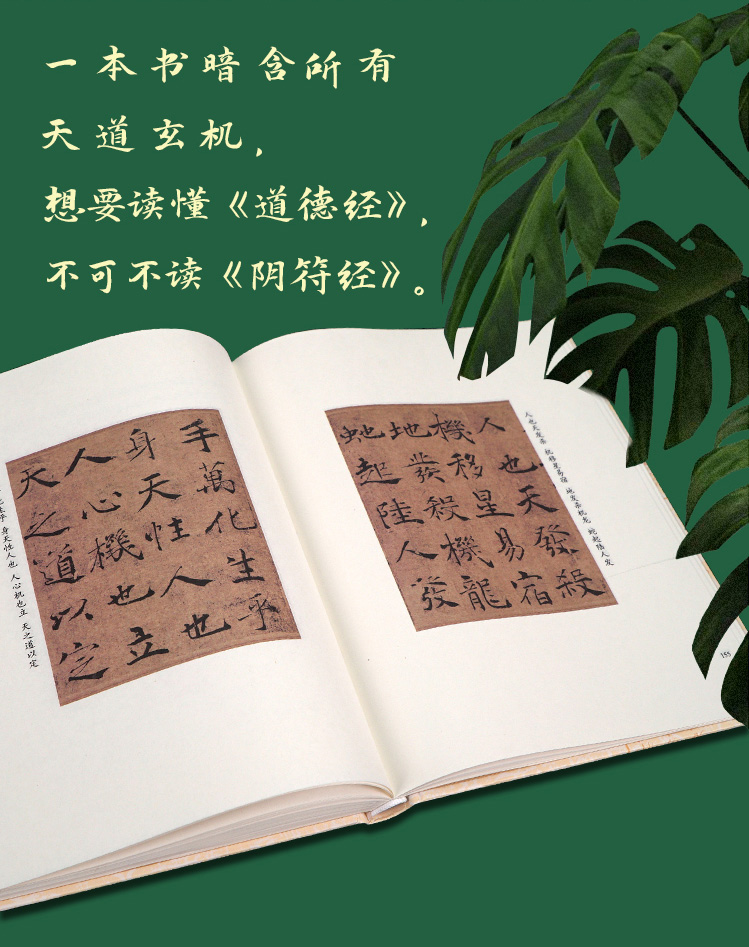 一本书暗含所有
天道玄机，
想要读懂《道德经》，
不可不读《阴符经》。
手萬化生乎
身天性人也
人心機也立
天之道以定
生乎 身天性人也 人心机也立 天之道以定
人也天發殺
機移星易宿
地發殺機龍
虵起陸人發
人也天发杀 机移星易宿 地发杀机龙 蛇起陆人发
155